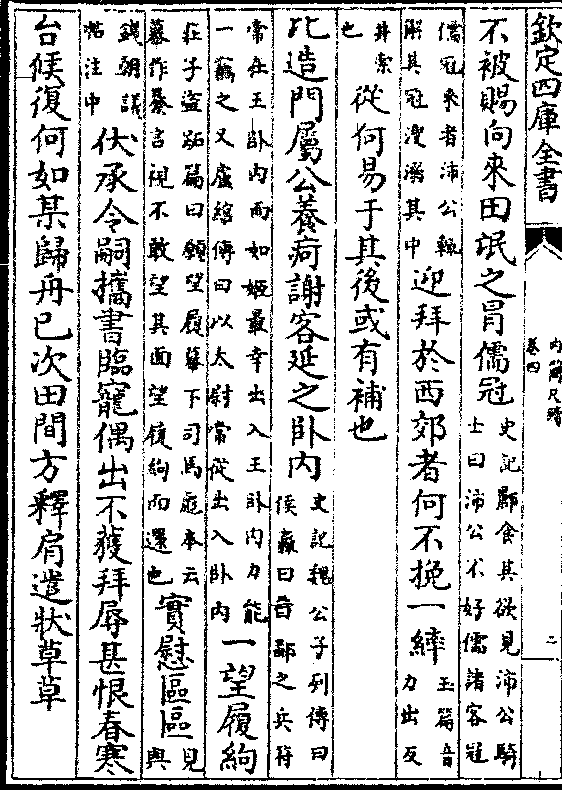 欽定四庫全書
內簡尺牘
卷四
二
不被賜向來田氓之冐儒冠史記酈食其欲見沛公騎
士曰沛公不好儒諸客冠
儒冠來者沛公輒
解其冠溲溺其中迎拜於西郊者何不挽一綍玉篇音
力出反
井索
也從何易于其後或有補也
比造門屬公養疴謝客延之卧內史記魏公子列傳曰
侯嬴曰晉鄙之兵符
常在王卧内而如姬最幸出入王卧内力能
竊之又盧綰傳曰以太尉常從出入卧内一望履絢
莊子盜跖篇曰願望履幕下司馬彪本云
幕作綦言視不敢望其面望履絢而還也實慰區區見
與
錢朝議
帖注中伏承令嗣攜書臨寵偶出不獲拜辱甚恨春寒
台候復何如某歸舟已次田間方釋肩遣狀草草